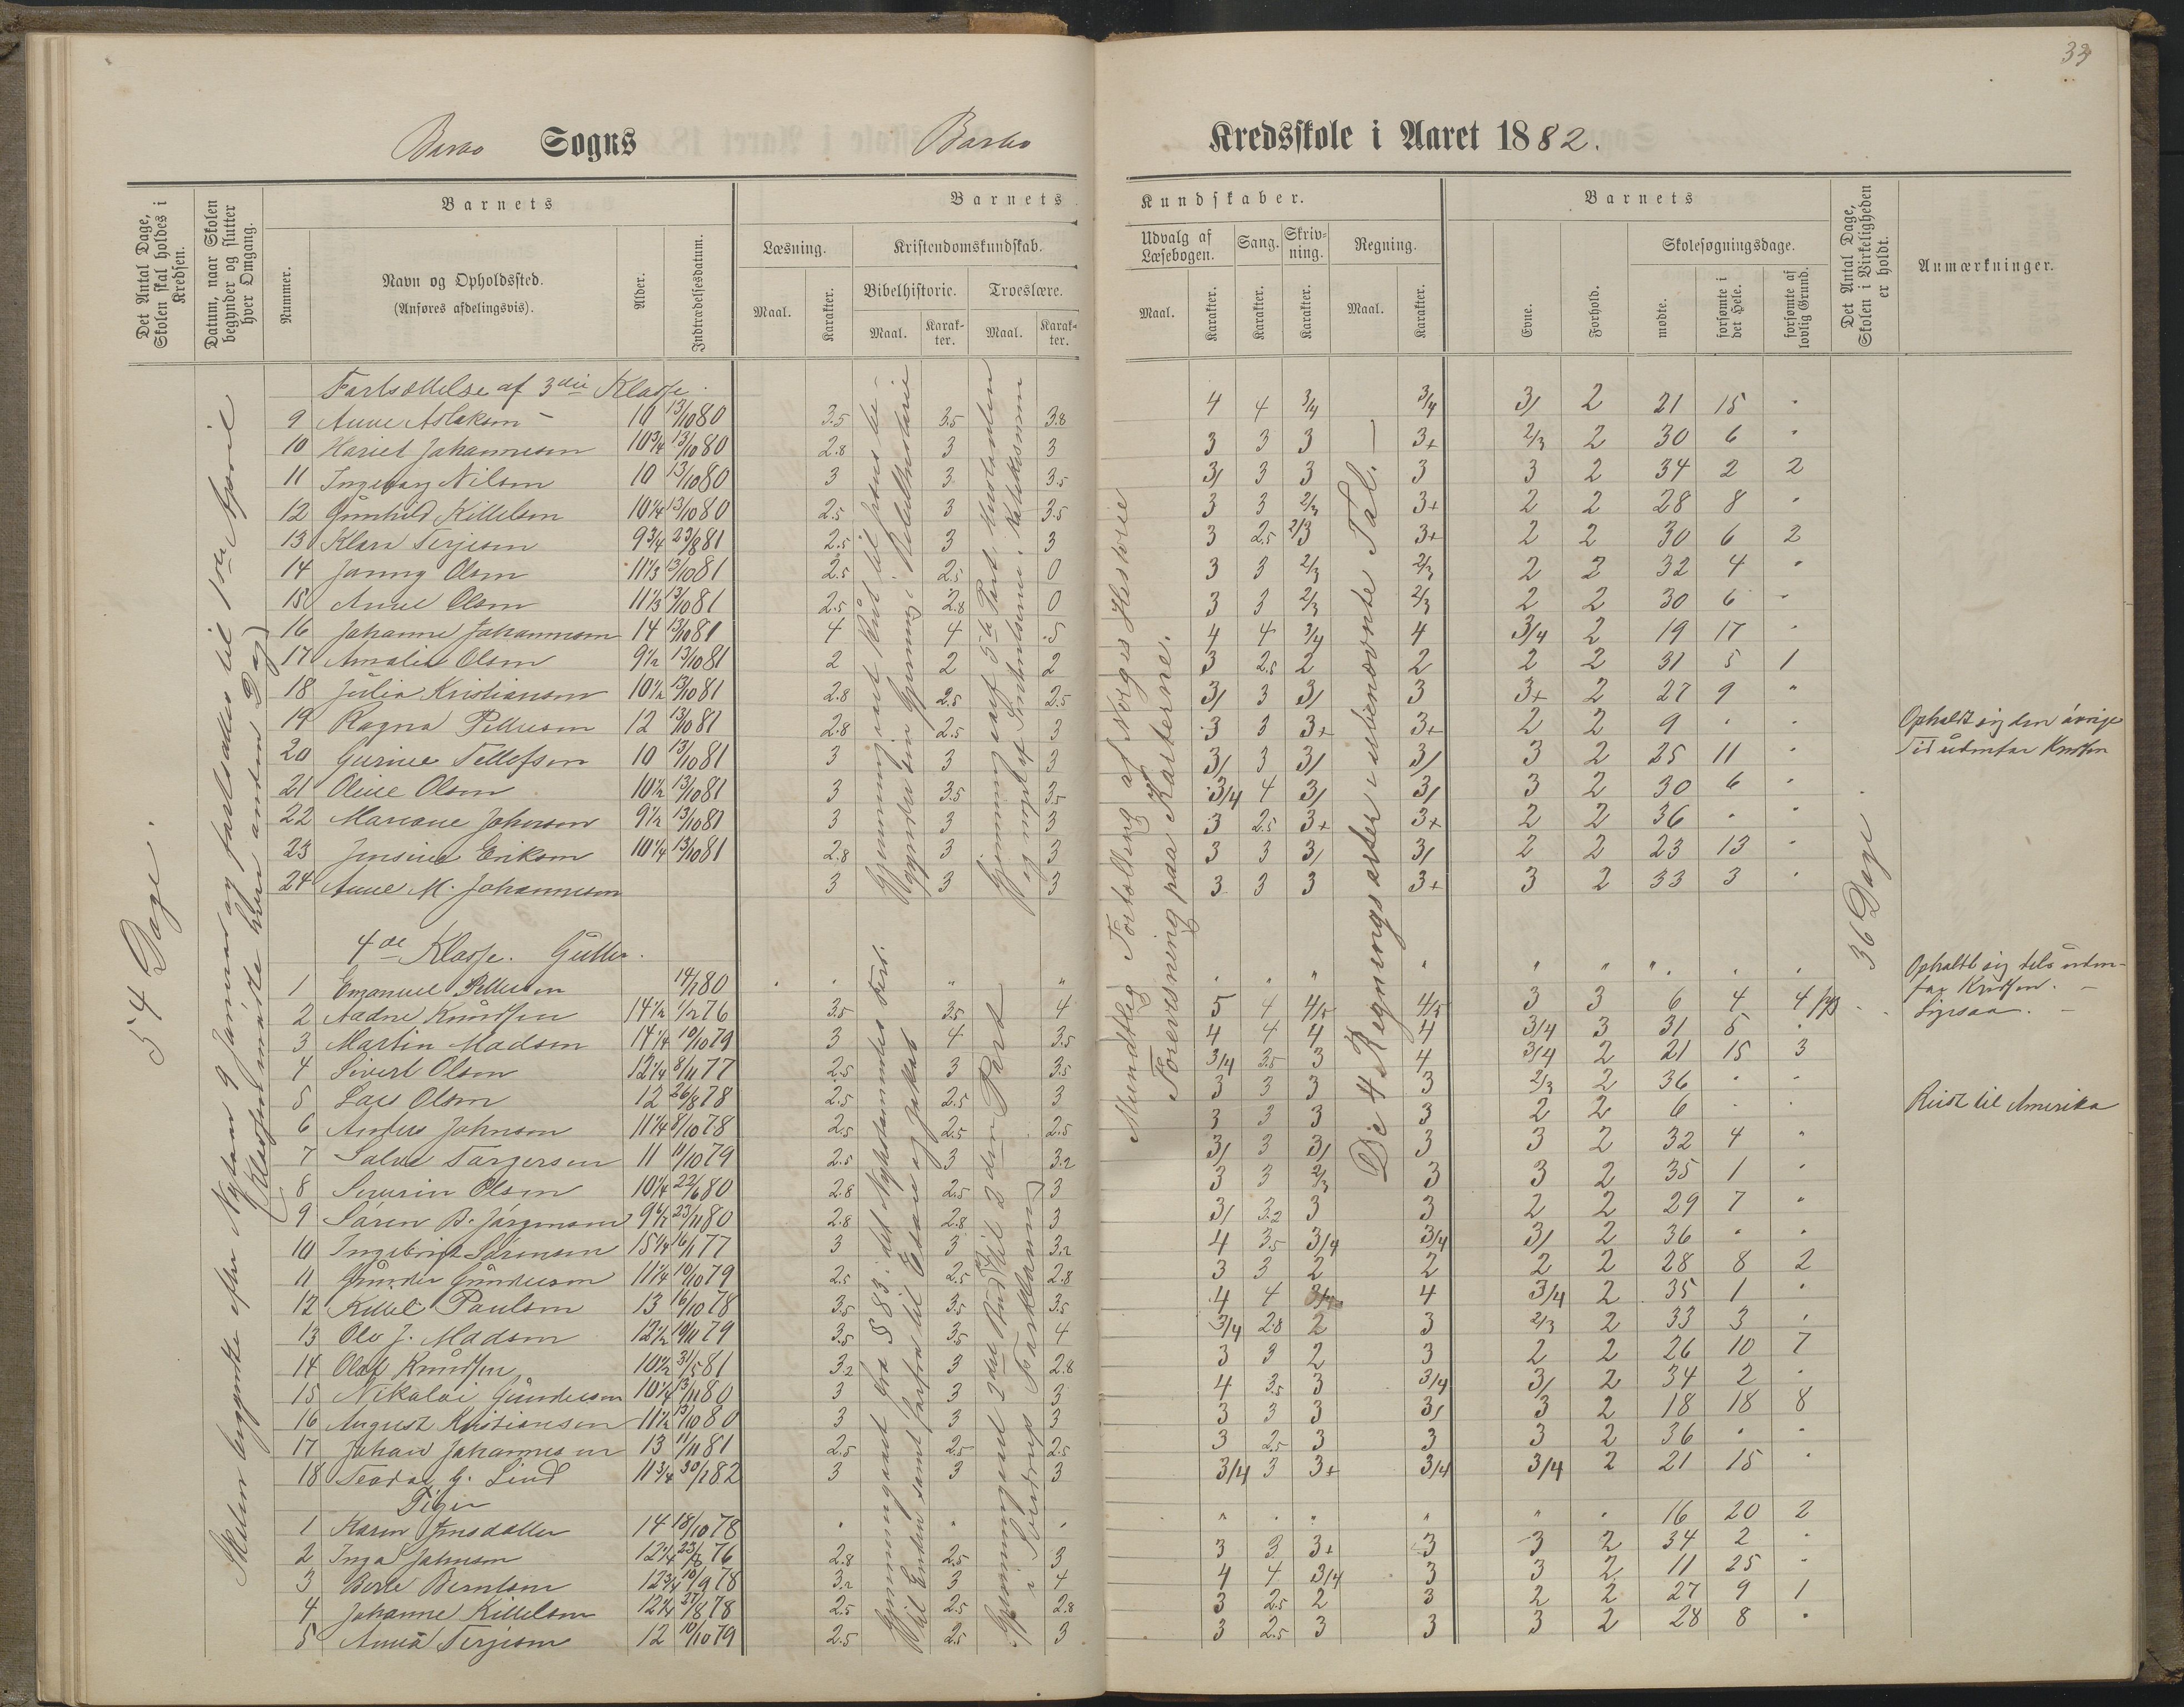 33
Barbo Sogns Barbo Kredsskole i Aaret 1882.
Det Antal Dage, Skolen skal holdes i Kredsen.
Datum, naar Skolen begynder og slutter hver Omgang.
Barnets
Nummer.
Navn og Opholdssted.
(Anføres afdelingsvis).
Alder.
Indtrædelsesdatum.
Barnets Kundskaber.
Læsning.
Maal.
Karakter.
Kristendomskundskab.
Bibelhistorie.
Maal.
Karakter.
Troeslære.
Maal.
Karakter.
Udvalg af Læsebogen.
Maal.
Karakter.
Sang.
Karakter.
Skrivning.
Karakter.
Regning.
Maal.
Karakter.
Barnets
Evne.
Forhold.
Skolesøgningsdage.
mødte.
forsømte i det Hele.
forsømte af lovlig Grund.
Det Antal Dage, Skolen i Virkeligheden er holdt.
Anmærkninger.
54 Dage.
Skolen begyndte efter Nytaar 9 Januar og fortsattes til 1ste April
(Klassen mødte hver anden Dag)
Mundtlig Fortælling af Norges Historie
Forevisning paa Karterne.
De 4 Regningsarter i ubenævnte Tal.
36 Dage.
Fortsættelse af 3die Klasse.
9 Anne Aslaksen 10 13/10 80 3.5 3.5 3.8 4 4 3/4 3/4 3/ 2 21 15 "
10 Hariet Johannesen 10 3/4 13/10 80 2.8 3 3 3 3 3 3+ 2/3 2 30 6 "
11 Ingeborg Nilsen 10 13/10 80 3 3 3.5 3/ 3 3 3 3 2 34 2 2
12 Gunhild Kittelsen 10 1/4 13/10 80 2.5 3 3.5 3 3 2/3 3+ 2 2 28 8 "
13 Klara Terjesen 9 3/4 23/8 81 2.5 3 3 3 2.5 2/3 3+ 2 2 30 6 2
14 Janny Olsen 11 1/3 13/10 81 2.5 2.5 0 3 3 2/3 2/3 2 2 32 4 "
15 Anne Olsen 11 1/3 13/10 81 2.5 2.8 0 3 3 2/3 2/3 2 2 30 6 "
16 Johanne Johannesen 14 13/10 81 4 4 5 4 4 3/4 4 3/4 2 19 17 "
17 Amalie Olsen 9 1/2 13/10 81 2 2 2 3 2.5 2 2 2 2 31 5 1
18 Julia Kristiansen 10 1/2 13/10 81 2.8 2.5 2.5 3/ 3 3/ 3 3+ 2 27 9 "
19 Ragna Pettersen 12 13/10 81 2.8 2.5 3 3 3 3+ 3+ 2 2 9 " " Opholdt sig den øvrige Tid udenfor Kredsen
20 Gurine Tellefsen 10 13/10 81 3 3 3 3/ 3 3/ 3/ 3 2 25 11 "
21 Oline Olsen 10 1/2 13/10 81 3 3.5 3.5 3/4 4 3/ 3/ 3 2 30 6 "
22 Mariane Johnsen 9 1/2 13/10 81 3 3 3 3 2.5 3+ 3+ 2 2 36 " "
23 Jensine Eriksen 10 1/4 13/10 81 2.8 3 3 3 3 3/ 3/ 2 2 23 13 "
24 Anne M. Johannesen 3 3 3 3 3 3 3+ 3 2 33 3 "
4de Klasse. Gutter.
1 Emanuel Pettersen 14/1 80 " " " " " " " " " " " " Opholdt sig dels udenfor Kredsen.
2 Aadne Knudsen 14 1/2 1/2 76 3.5 3.5 4 5 4 4/5 4/5 3 3 6 4 4
3 Martin Madsen 14 1/4 10/10 79 3 4 3.5 4 4 4 4 3/4 3 31 5 "
4 Sivert Olsen 12 1/4 8/11 77 2.5 3 3.5 3/4 3.5 3 4 3/4 2 21 15 3
5 Lars Olsen 12 26/8 78 2.5 2.5 3 3 3 3 3 2/3 2 36 " "
6 Anders Johnsen 11 1/4 8/10 78 2.5 2.5 2.5 3 3 3 3 2 2 6 " " Reist til Amerika
7 Salve Torgersen 11 11/10 79 2.5 3 3.2 3/ 3 3/ 3 3 2 32 4 "
8 Severin Olsen 10 1/4 22/6 80 2.8 2.5 3 3 3 2/3 3 3 2 35 1 "
9 Søren B. Jørgensen 9 1/2 23/11 80 2.8 2.8 3 3/ 3.2 3 3 2 2 29 7 "
10 Ingebrigt Sørensen 15 1/4 16/1 77 3 3 3.2 4 3.5 3/4 3/4 3/ 2 36 " "
11 Gunder Gundersen 11 1/4 10/10 79 2.5 2.5 2.8 3 3 2 2 2 2 28 8 2
12 Kittel Paulsen 13 16/10 78 3.5 3.5 3.5 4 4 3/4 4 3/4 2 35 1 "
13 Ole J. Madsen 12 1/2 10/11 79 3.5 3.5 4 3/4 2.8 2 3 2/3 2 33 3 "
14 Olaf Knudsen 10 1/2 31/5 81 3.2 3 2.8 3 3 2 3 2 2 26 10 7
15 Nikolai Gundersen 10 1/4 3/11 80 3 3 3 4 3.5 3 3/4 3/ 2 34 2 "
16 August Kristiansen 11 1/2 13/10 80 3 3 3 3 3 3 3/ 3 2 18 18 8
17 Johan Johannesen 13 11/11 81 2.5 2.5 2.5 3 2.5 3 3 3 2 36 " "
18 Teodor G. Lind 11 3/4 30/1 82 3 3 3 3/4 3 3+ 3/4 3/4 2 21 15 "
Piger
1 Karen Jensdatter 14 18/10 78 " " " " " " " " " 16 20 2
2 Inga Johnsen 12 1/4 23/8 76 2.8 2.5 3 3 3 3+ 3 3 2 34 2 "
3 Berte Berntsen 12 3/4 10/9 78 3.2 3 4 4 4 3/4 3 3 2 11 25 "
4 Johanne Kittelsen 12 1/4 27/8 78 2.5 2.5 2.8 3 2.5 2 3 2 2 27 9 1
5 Anna Terjesen 12 10/10 79 2.5 2.5 3 3 2.5 3 3 3 2 28 8 "